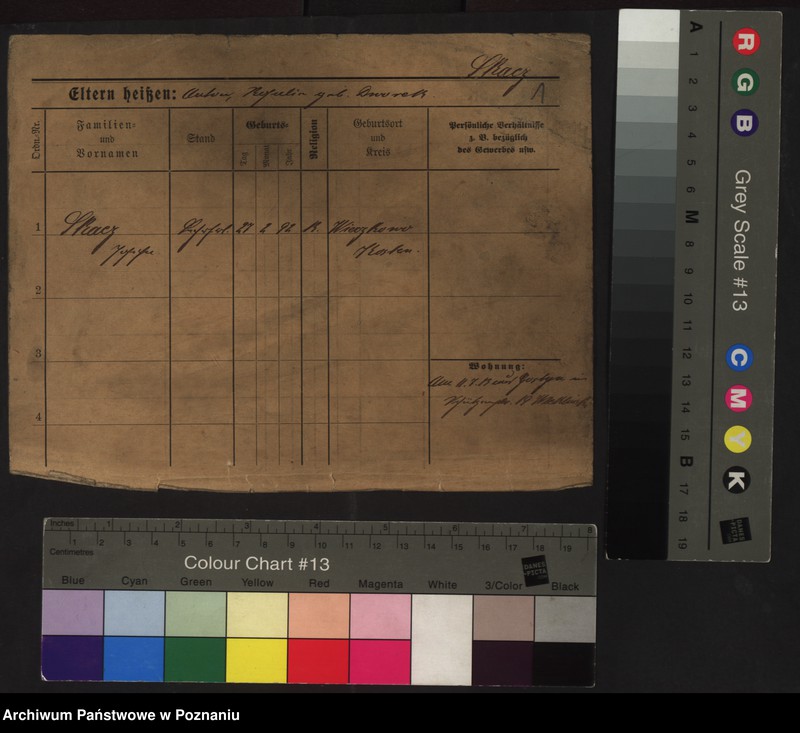 Skacz
Eltern heißen: Anton, geb. Dworek
1
Ordn.-Nr.
Familien-
und
Vornamen
Stand
Geburts-
Tag
Monat
Jahr
Religion
Geburtsort
und
Kreis
Persönliche Verhältnisse
z. B. bezüglich
des Gewerbes usw.
1 Skacz 27 2 92 K. Wieszkowo
Kosten.
2
3
Wohnung:
4
A 1 2 3 4 5 6 M 8 9 10 11 12 13 14 15 B 17 18 19
Grey Scale #13
R G B C M Y K
DANES
PICTA
Inches 1 2 3 4 5 6 7 8
Centimetres 1 2 3 4 5 6 7 8 9 10 11 12 13 14 15 16 17 18 19
Colour Chart #13
DANES
PICTA
Blue Cyan Green Yellow Red Magenta White 3/Color Black
Archiwum Państwowe w Poznaniu